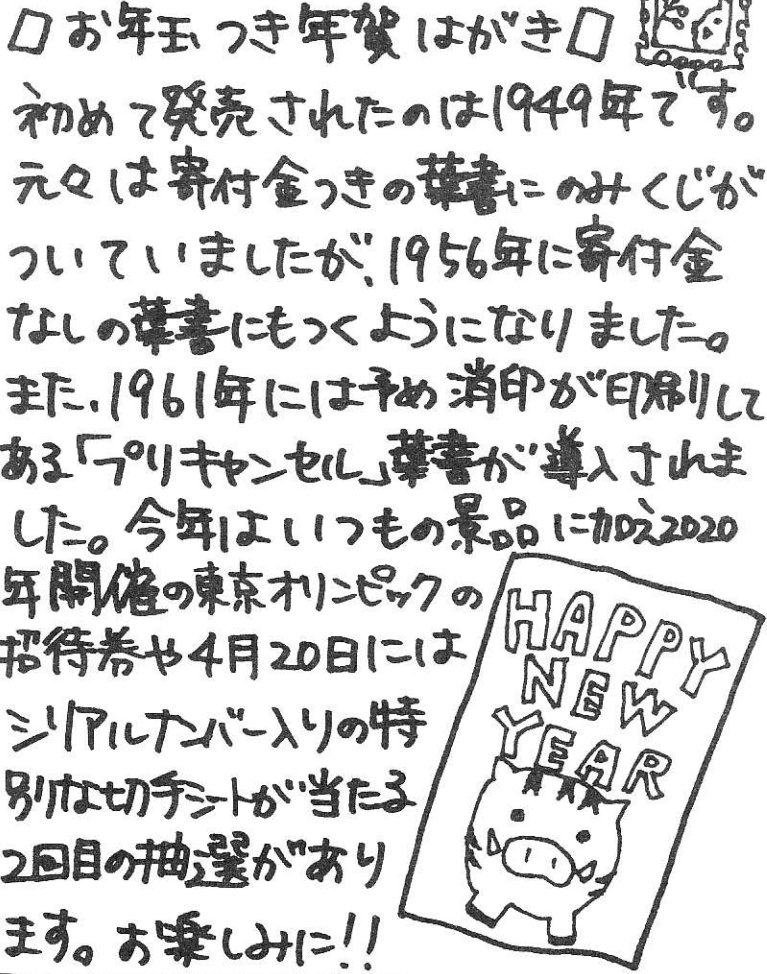 □お年玉つき年賀はがき□
初めて発売されたのは1949年です。
元々は寄付金つきの葉書にのみくじが
ついていましたが、1956年に寄付金
なしの葉書にもつくようになりました。
また、1961年には予め消印が印刷して
ある「プリキャンセル」葉書が導入されま
した。今年はいつもの景品に加え2020
年開催の東京オリンピックの
招待券や4月20日には
シリアルナンバー入りの特
別な切手シートが当たる
2回目の抽選があり
ます。お楽しみに!!
HAPPY
NEW
YEAR